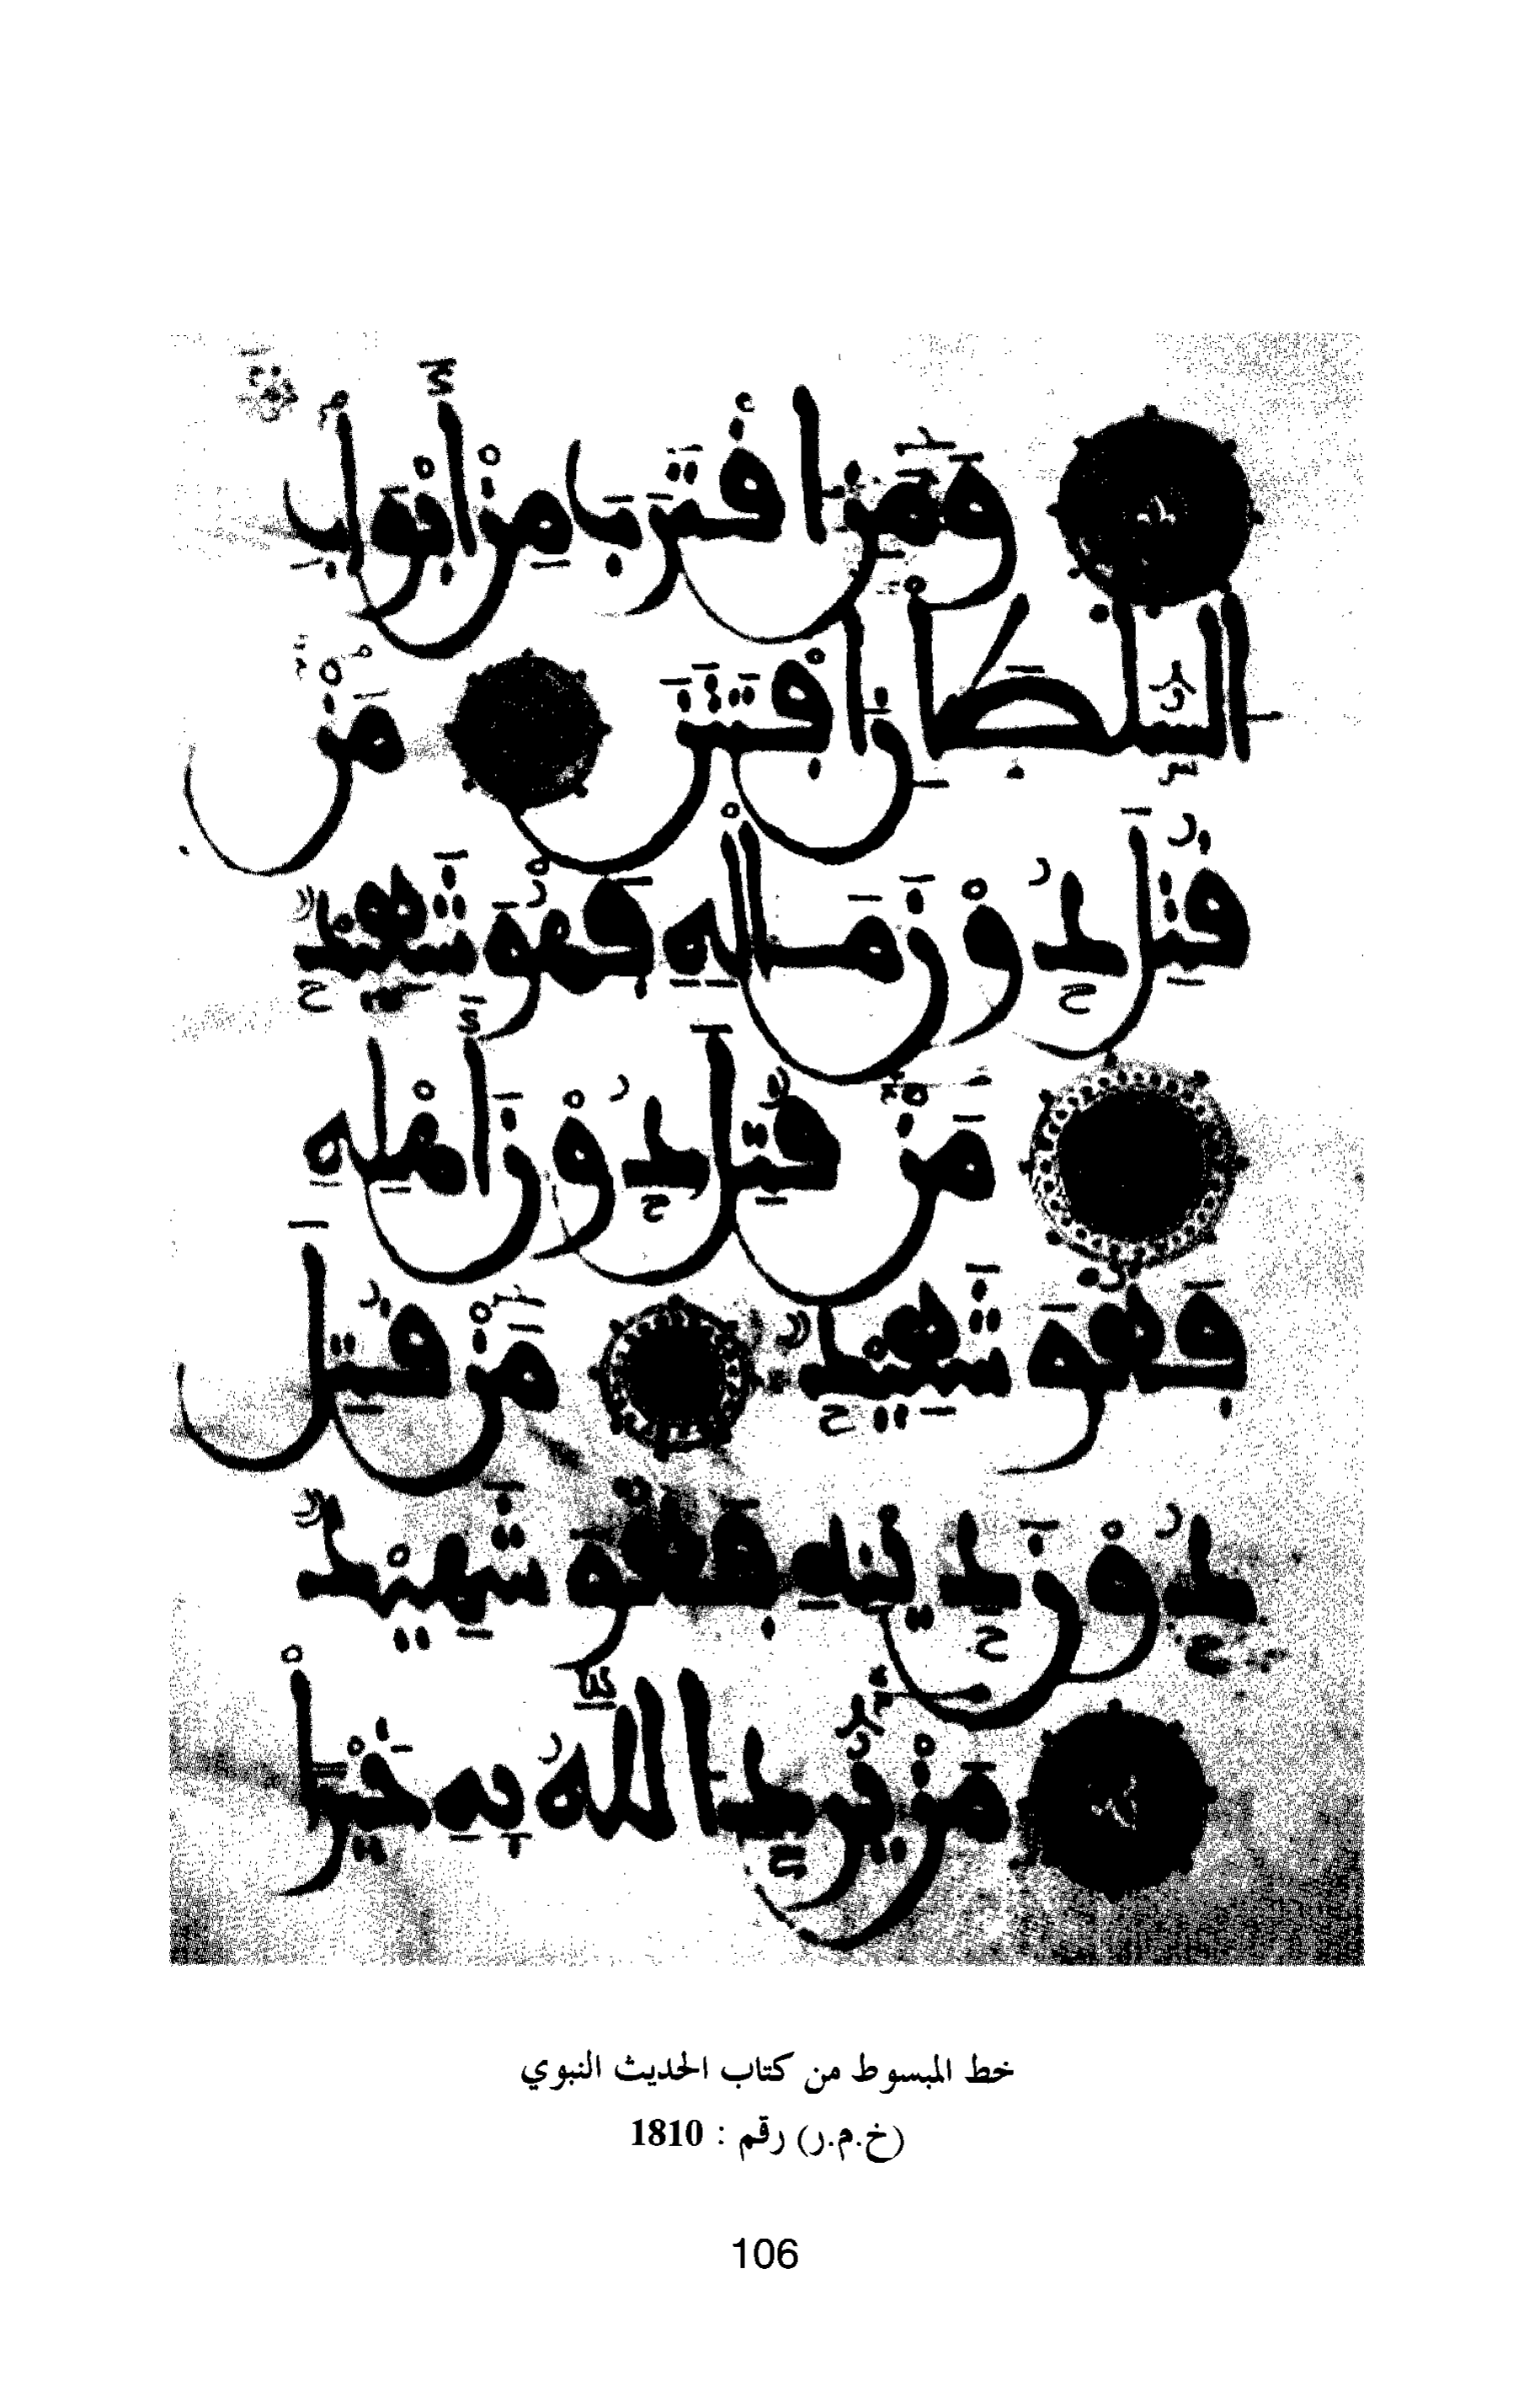 وَمَنِ اقْتَرَبَ مِنْ أَبْوَابِ
السُّلْطَانِ افْتَتَنَ مَنْ
قُتِلَ دُونَ مَالِهِ فَهُوَ شَهِيدٌ
مَنْ قُتِلَ دُونَ أَهْلِهِ
فَهُوَ شَهِيدٌ مَنْ قُتِلَ
دُونَ دِينِهِ فَهُوَ شَهِيدٌ
مَنْ يُرِدِ اللهُ بِهِ خَيْرًا
خط المبسوط من كتاب الحديث النبوي
(خ.م.ر) رقم : 1810
106